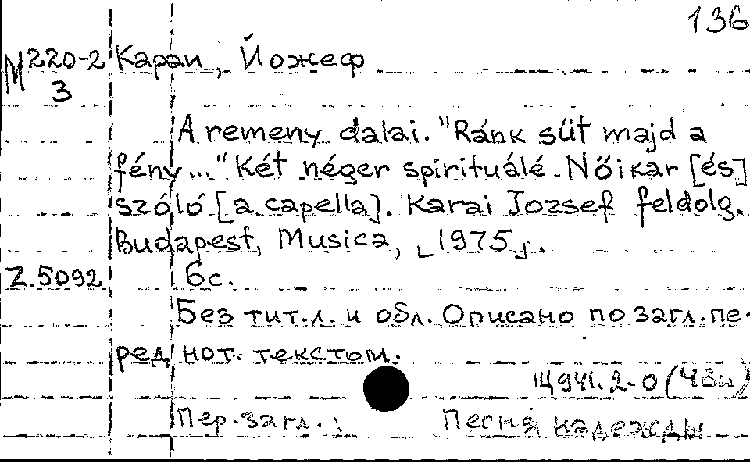 136
М220-2 Караи, Йожеф
3
A remeny dalai. "Ránk süt majd a
fény..." Két néger spirituálé. Nőikar [és]
szóló [a capella]. Karai Jozsef feldolg.
Budapest, Musica, [1975].
Z.5092 6с.
Без тит.л. и обл. Описано по загл.пе-
ред нот. текстом.
Щ941.2-0
Пер.загл.: Песня надежды